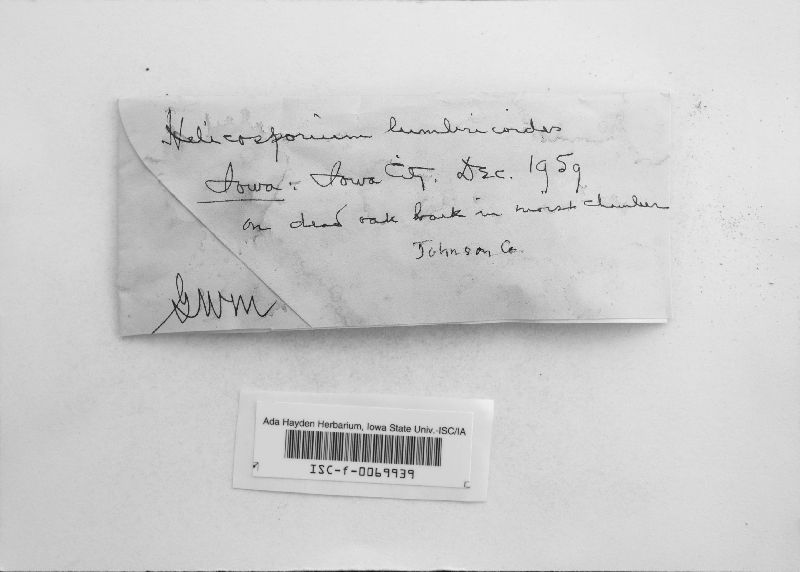 Helicosporium lumbricoides
Iowa. Iowa City. Dec. 1959
on dead oak bark in moist chamber
Johnson Co.
GWM
Ada Hayden Herbarium, Iowa State Univ.-ISC/IA
ISC-f-0069939